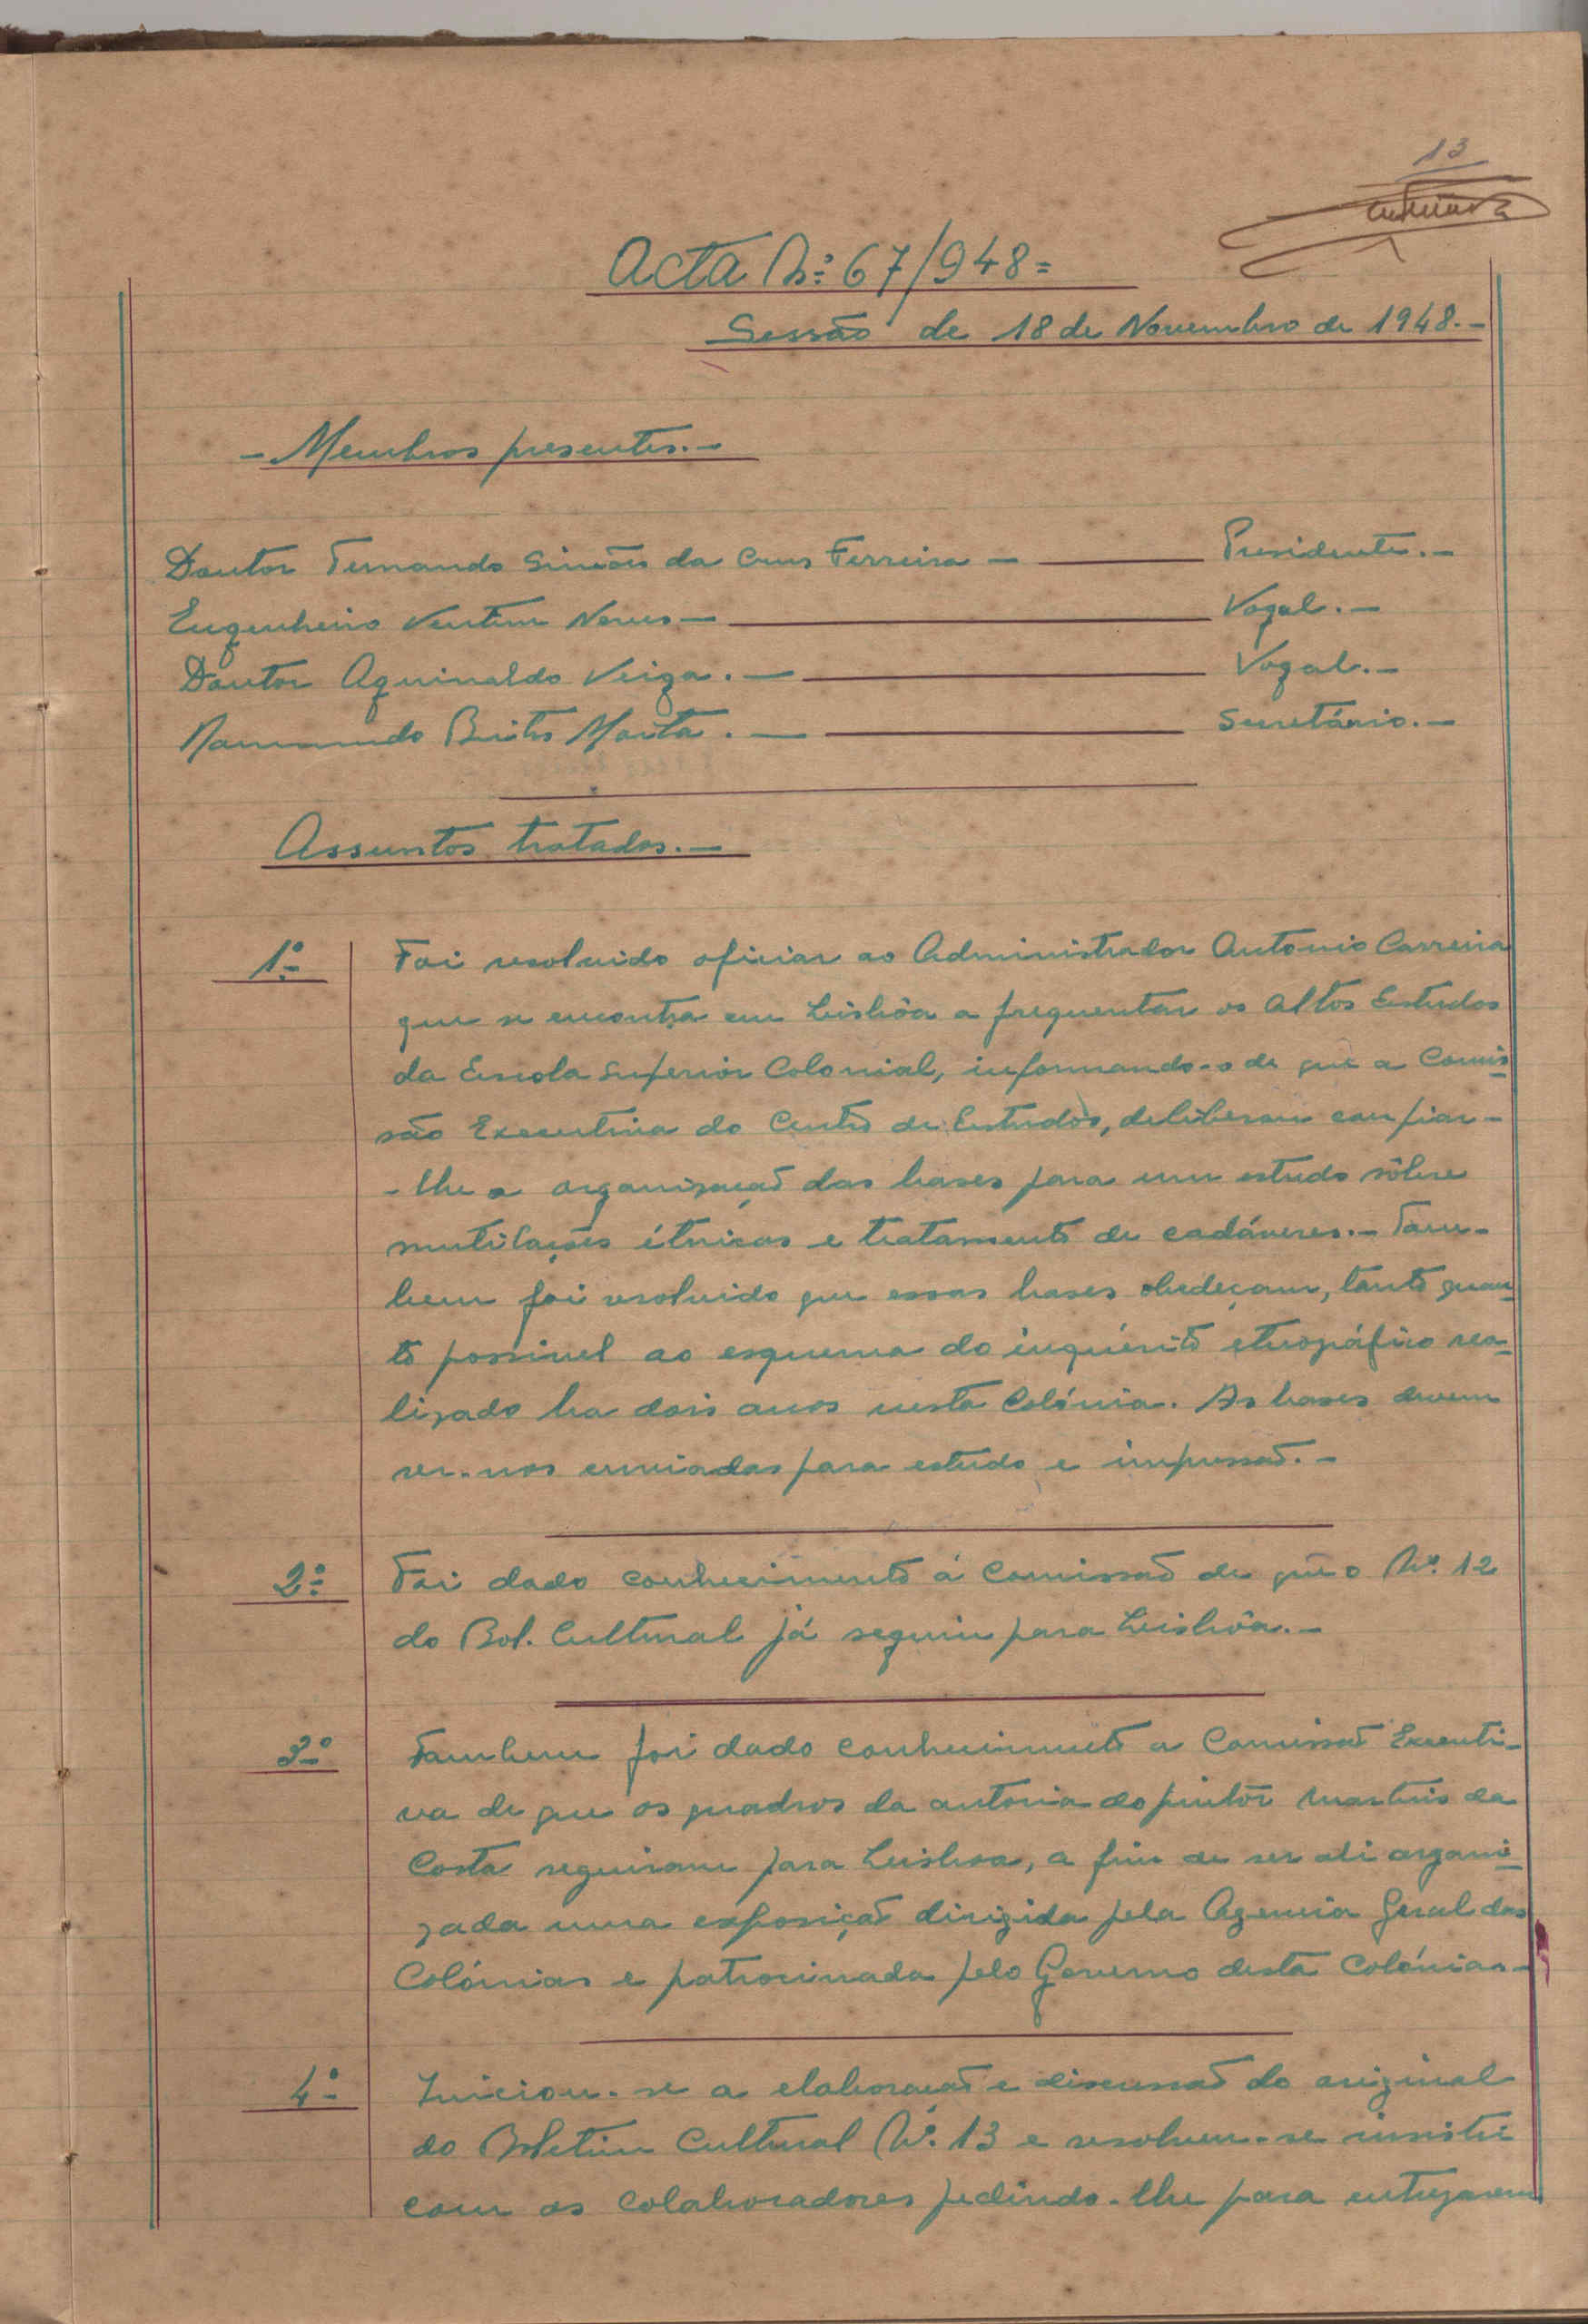 13
Acta Nº: 67/948=
Sessão de 18 de Novembro de 1948.-
- Membros presentes.-
Doutor Fernando Simões da Cruz Ferreira - Presidente.-
Engenheiro Ventim Neves - Vogal.-
Doutor Aguinaldo Veiga.- Vogal.-
Brites Marta.- Secretário.-
Assuntos tratados.-
1º-
Foi resolvido oficiar ao Administrador Antonio Carreira
que se encontra em Lisbôa a frequentar os Altos Estudos
da Escola Superior Colonial, informando-o de que a Comis-
são Executiva do Centro de Estudos, deliberou confiar-
-lhe a organisação das bases para um estudo sôbre
mutilações étnicas e tratamento de cadáveres.- Tam-
bem foi resolvido que essas bases obedeçam, tanto quan-
to possivel ao esquema do inquérito etnográfico rea-
lizado ha dois anos nesta Colónia. As bases devem
ser-nos enviadas para estudo e impressão.-
2º-
Foi dado conhecimento á Comissão de que o Nº. 12
do Bol. Cultural já seguiu para Lisbôa.-
3º-
Tambem foi dado conhecimento a Comissão Executi-
va de que os quadros da autoria do pintor Martins da
Costa seguiram para Lisboa, a fim de ser ali organi-
zada uma exposição dirigida pela Agencia Geral das
Colónias e patrocinada pelo Governo desta Colónia.-
4º-
Iniciou-se a elaboração e discussão do original
do Boletim Cultural Nº. 13 e resolveu-se insistir
com os colaboradores pedindo-lhe para entregarem